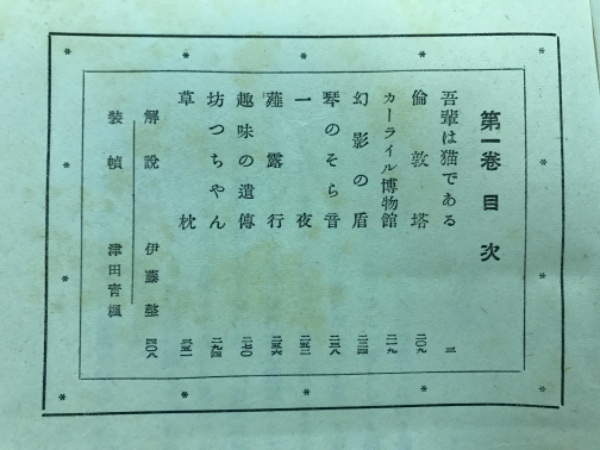 第一卷 目次
吾輩は猫である 三
倫敦塔 二〇九
カーライル博物館 二一九
幻影の盾 二二四
琴のそら音 二三八
一夜 二五二
薤露行 二五六
趣味の遺傳 二七〇
坊つちやん 二九四
草枕 三五一
解說 伊藤整 四〇八
裝幀 津田靑楓